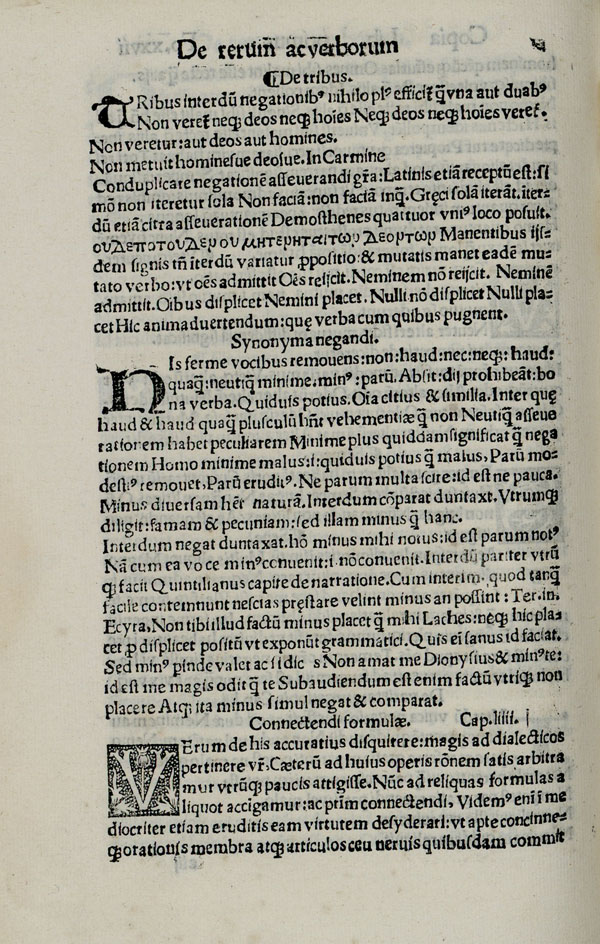 De rerum̄ ac verborum
¶De tribus.
TRibus interdū negationibꝰ nihilo plꝰ efficit̄ q̄ vna aut duabꝰ
Non veret̄ neqꝫ deos neqꝫ hoīes Neqꝫ deos neqꝫ hoīes veret̄.
Non veretur: aut deos aut homines.
Non metuit hominesue deosue. In Carmine
Conduplicare negationē asseuerandi gr̄a: Latinis etiā receptū est: si
mō non iteretur sola Non faciā: non faciā inq̄. Gręci solā iterāt. iter-
dū etiā citra asseuerationē Demosthenes quattuor vniꝰ loco posuit.
Manentibus ijs-
dem signis tn̄ iterdū variatur ꝓpositio: & mutatis manet eadē mu-
tato verbo: vt oēs admittit Oēs reijcit. Neminem nō reijcit. Neminē
admittit. Oibus displicet Nemini placet. Nulli nō displicet Nulli pla-
cet Hic animaduertendum: quę verba cum quibus pugnent.
Synonyma negandi.
HIs ferme vocibus remouens: non: haud: nec: neqꝫ: haud:
quaq̄: neutiq̄ minime. minꝰ: parū. Absit: dij prohibeāt: bo
na verba. Quiduis potius. Oīa citius & similia. Inter quę
haud & haud quaq̄ plusculū hn̄t vehementiæ q̄ non Neutiq̄ asseue
rationem habet peculiarem Minime plus quiddam significat q̄ nega
tionem Homo minime malus: i: quiduis potius q̄ malus, Parū mo-
destiꝰ remouet, Parū eruditꝰ. Ne parum multa scire: id est ne pauca.
Minus diuersam hēt naturā. Interdum cōparat duntaxt. Vtrumqꝫ
diligit: famam & pecuniam: sed illam minus q̄ hanc.
Interdum negat duntaxat. hō minus mihi notus: id est parum notꝰ
Nā cum ea voce minꝰ conuenit: i. nō conuenit. Interdū pariter vtrū
qꝫ facit Quintilianus capite de narratione. Cum interim. quod tanq̄
facile contemnunt nescias pręstare velint minus an possint: Ter. in
Ecyra, Non tibi illud factū minus placet q̄ mihi Laches: neqꝫ hic pla-
cet ꝓ displicet positū vt exponūt grammatici. Quis ei sanus id faciat.
Sed minꝰ ꝑinde valet ac si dic s Non amat me Dionysius & minꝰ te:
id est me magis odit q̄ te Subaudiendum est enim factū vtriqꝫ non
placere Atqꝫ ita minus simul negat & comparat.
Connectendi formulæ. Cap. iiii.
VErum de his accuratius disquirere: magis ad dialecticos
pertinere vr̄. Cæterū ad huius operis rōnem satis arbitra
mur vtrūqꝫ paucis attigisse. Nūc ad reliquas formulas a
liquot accigamur: ac prīm connectendi, Videmꝰ eni ī me
diocriter etiam eruditis eam virtutem desyderari: vt apte concinne-
qꝫ orationis membra atqꝫ articulos ceu neruis quibusdam commit